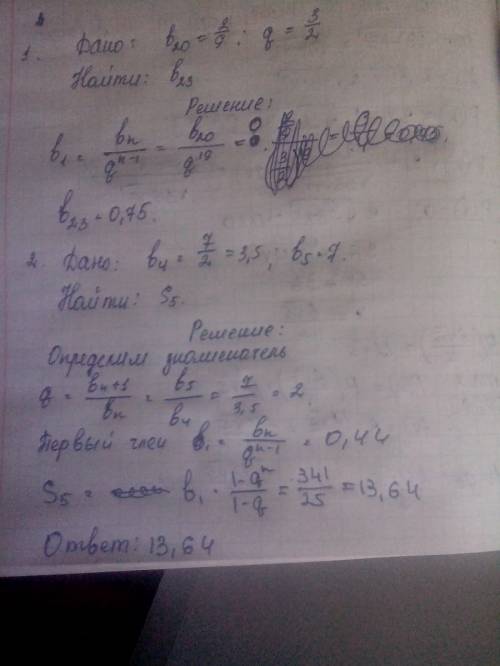 1. Дано: b₂₀ = 2/9; q = 3/2
Найти: b₂₃
Решение:
b₁ = bₙ/qⁿ⁻¹ = b₂₀/q¹⁹ =
b₂₃ = 0,75.
2. Дано: b₄ = 7/2 = 3,5; b₅ = 7.
Найти: S₅.
Решение:
Определим знаменатель
q = bₙ₊₁/bₙ = b₅/b₄ = 7/3,5 = 2
Первый член b₁ = bₙ/qⁿ⁻¹ = 0,44
S₅ = b₁ · 1-qⁿ/1-q = 341/25 = 13,64
Ответ: 13,64